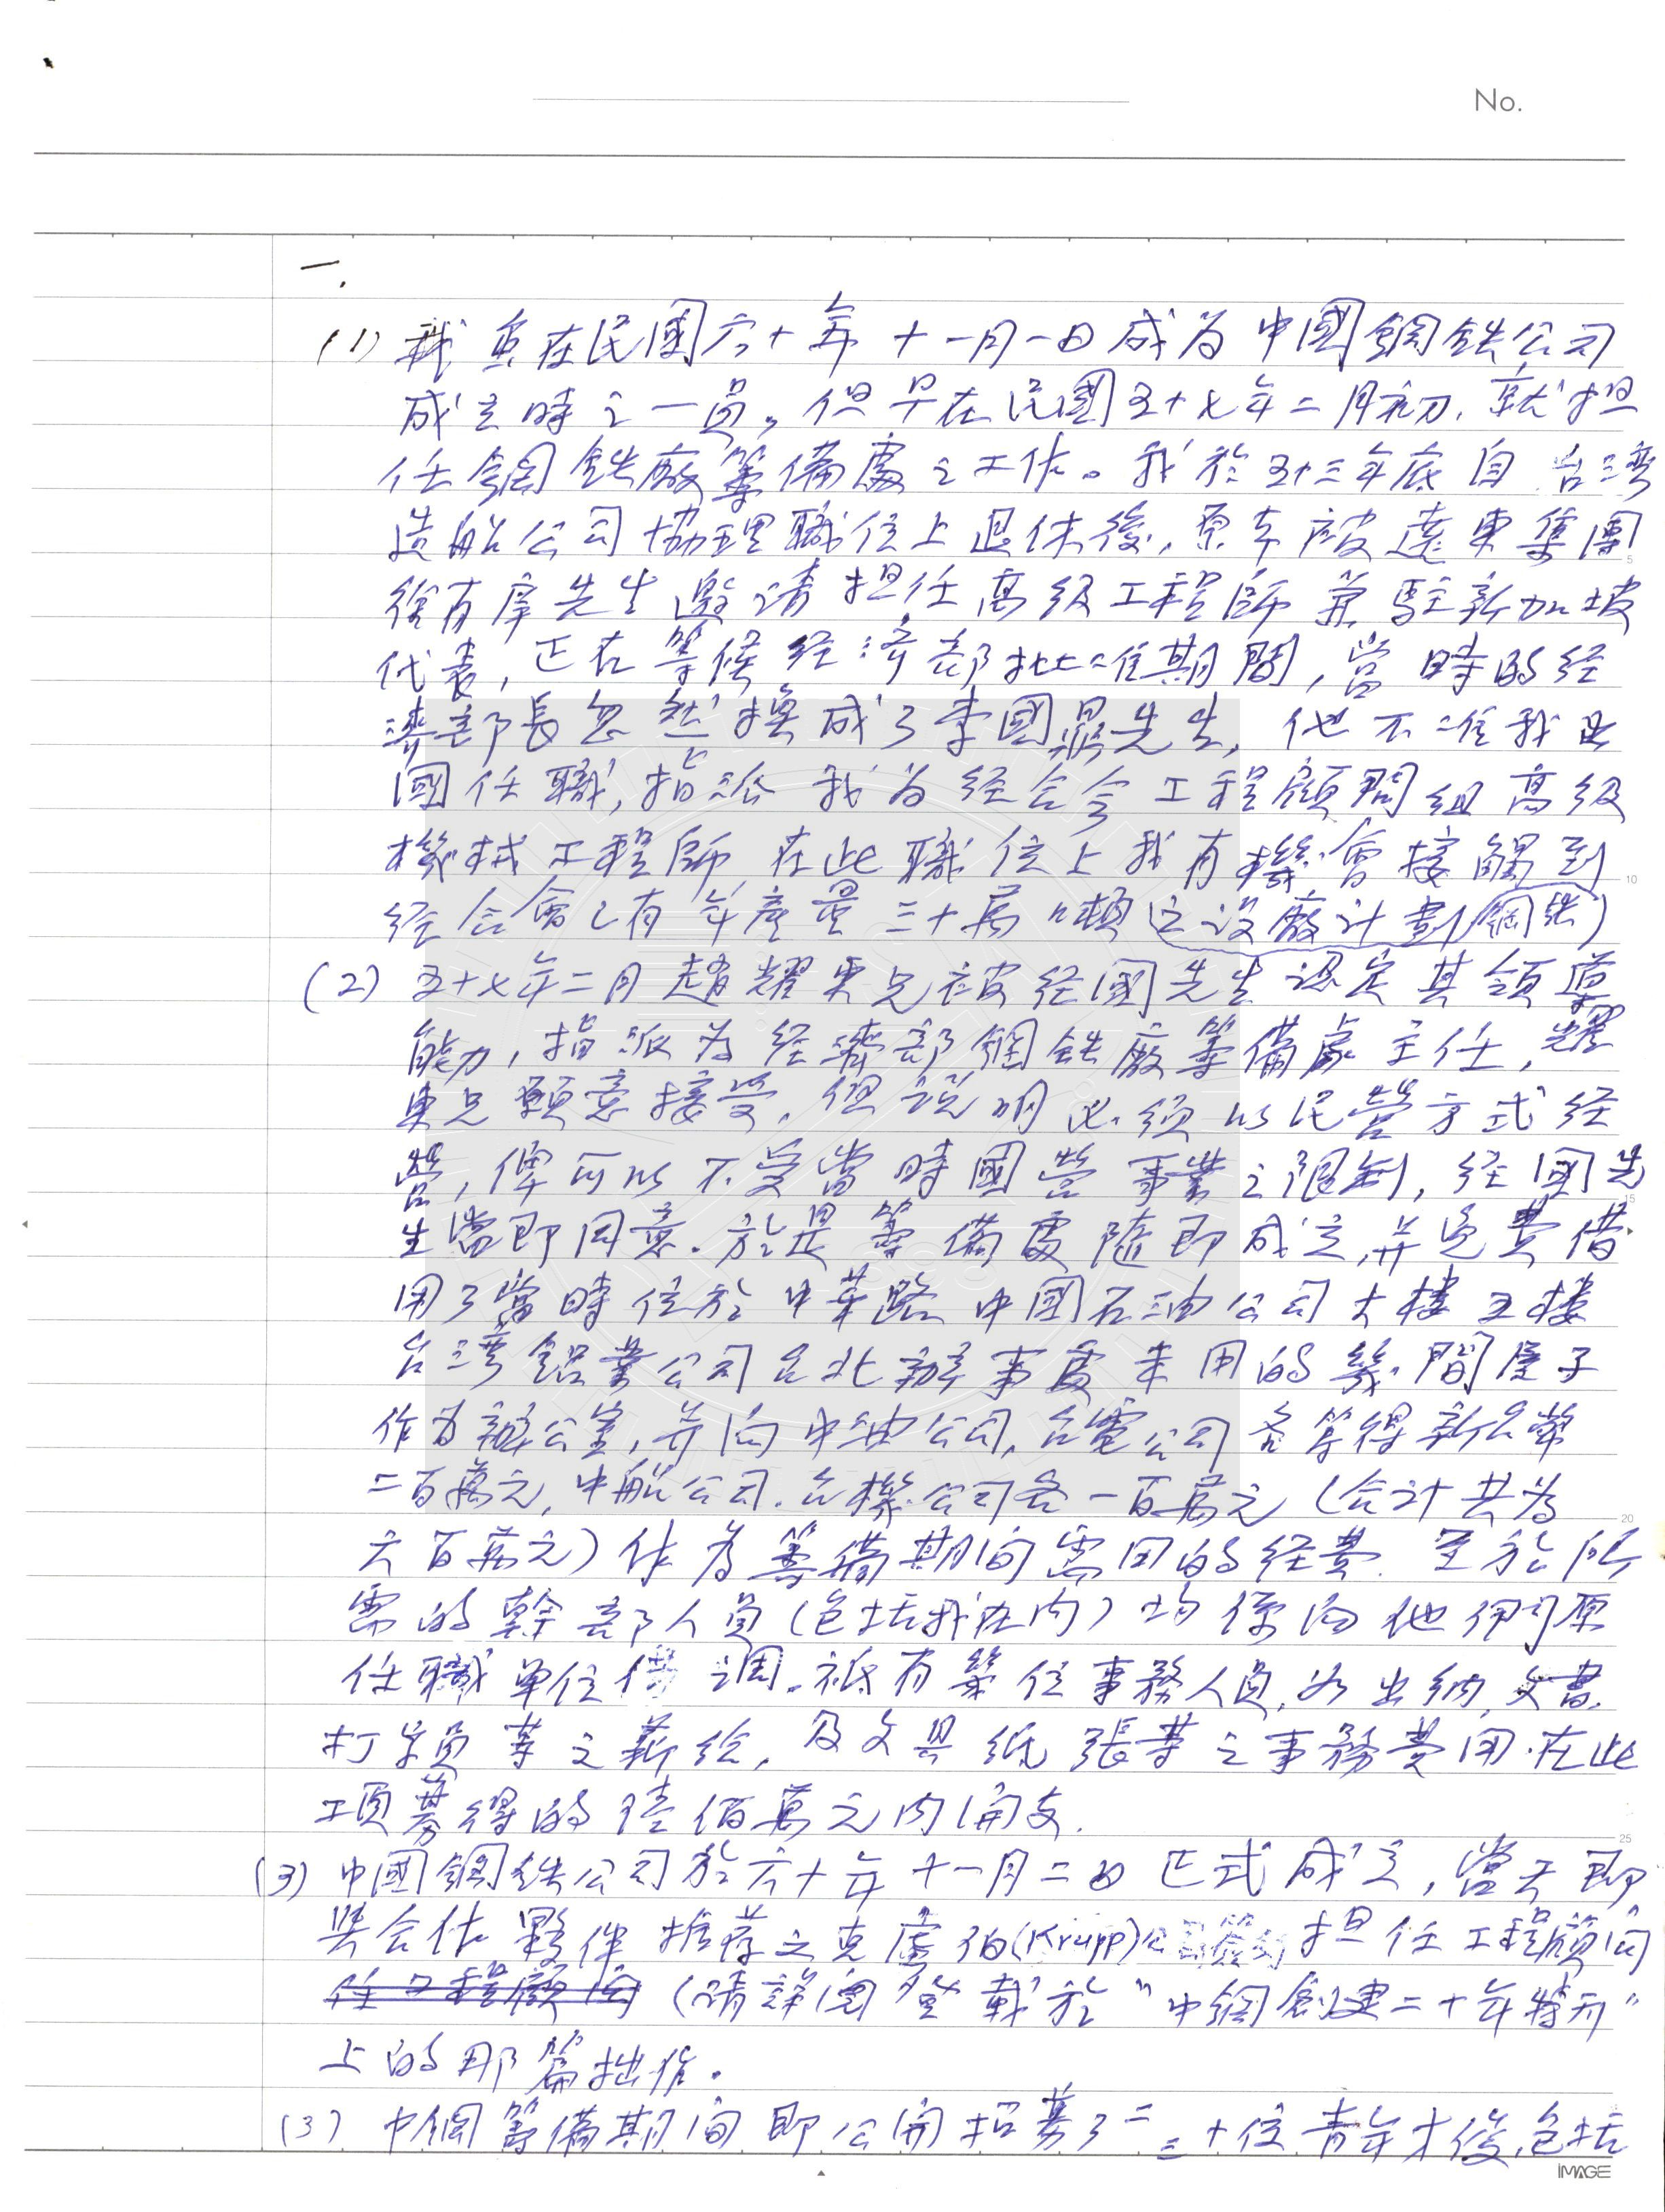 No.
一.
(1) 我是在民國六十年十一月一日成为中國鋼鉄公司
成立時之一員。但早在民國五十七年二月初，就担
任鋼鉄廠籌備處之工作。我於五十三年底自台湾
造船公司協理職位上退休後，原本應被遠東集團
徐有庠先生邀请担任高級工程師兼駐新加坡
代表，正在等候经济部批准期間，當時的经
濟部長忽然換成了李國鼎先生，他不准我出
國任職，指派我为经合会工程顧問组高級
機械工程師，在此職位上我有機會接觸到
经合會已有年產量三十萬噸之設廠计劃(鋼鉄)
(2) 五十七年二月趙耀東兄被经國先生认定其領導
能力，指派为经濟部鋼鉄廠籌備處主任，耀
東兄願意接受，但說明必須以民營方式经
營，俾可以不受當時國營事業之限制，经國先
生當即同意。於是籌備處随即成立，并免費借
用了當時位於中華路中國石油公司大樓五樓
台湾鋁業公司台北辦事處未用的幾間屋子
作为辦公室，并向中油公司，台電公司各籌得新台幣
二百萬元，中船公司.台機公司各一百萬元（合计共为
六百萬元）作为籌備期间需用的经費. 至於所
需的幹部人員（包括我在内）均係向他们原
任職單位借调。祇有幾位事務人員，如出纳，文書，
打字員等之薪给，及文具纸張等之事務費用.在此
項募得的陸佰萬元内開支.
(3) 中國鋼鉄公司於六十年十一月二日正式成立，當天即
與合作夥伴推荐之克虜伯(Krupp)公司簽約担任工程顧问
任工程顧问（请詳閱登載於“中鋼創建二十年特刊”
上的那篇拙作.
(3) 中鋼籌備期间即公開招募了二三十位青年才俊，包括
5
10
15
20
25
IMAGE